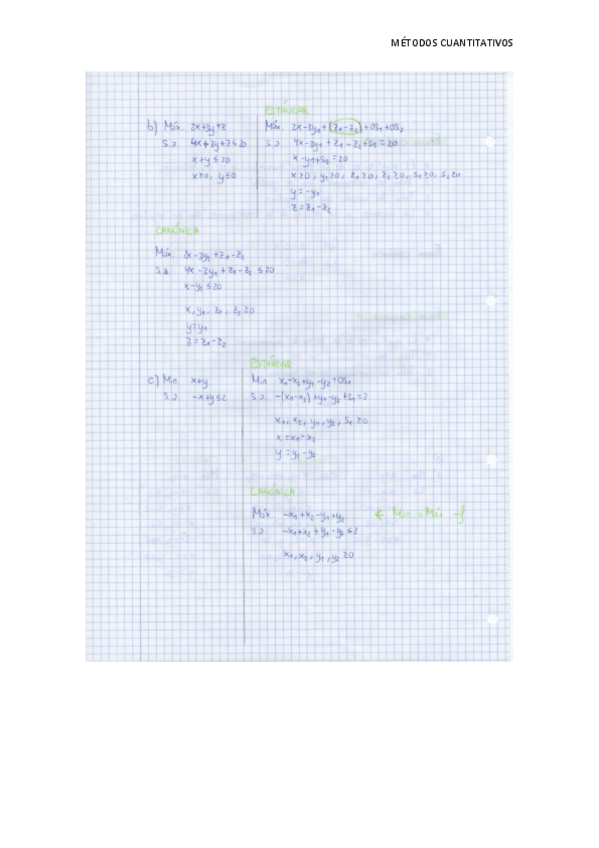 MÉTODOS CUANTITATIVOS
ESTÁNDAR
b) Máx. 2x+3y+z
s.a. 4x+3y+z≤20
x+y≤20
x≥0, y≤0
Máx. 2x-3y₁+(z₁-z₂)+0s₁+0s₂
s.a. 4x-3y₁+z₁-z₂+s₁=20
x-y₁+s₂=20
x≥0, y₁≥0, z₁≥0, z₂≥0, s₁≥0, s₂≥0
y=-y₁
z=z₁-z₂
CANÓNICA
Máx. 2x-3y₁+z₁-z₂
s.a. 4x-3y₁+z₁-z₂≤20
x-y₁≤20
x, y₁, z₁, z₂≥0
y=y₁
z=z₁-z₂
ESTÁNDAR
c) Min x+y
s.a. -x+y≤2
Min x₁-x₂+y₁-y₂+0s₁
s.a. -(x₁-x₂)+y₁-y₂+s₁=2
x₁, x₂, y₁, y₂, s₁≥0
x=x₁-x₂
y=y₁-y₂
CANÓNICA
Máx -x₁+x₂-y₁+y₂
← Min = Máx -f
s.a. -x₁+x₂+y₁-y₂≤2
x₁, x₂, y₁, y₂≥0